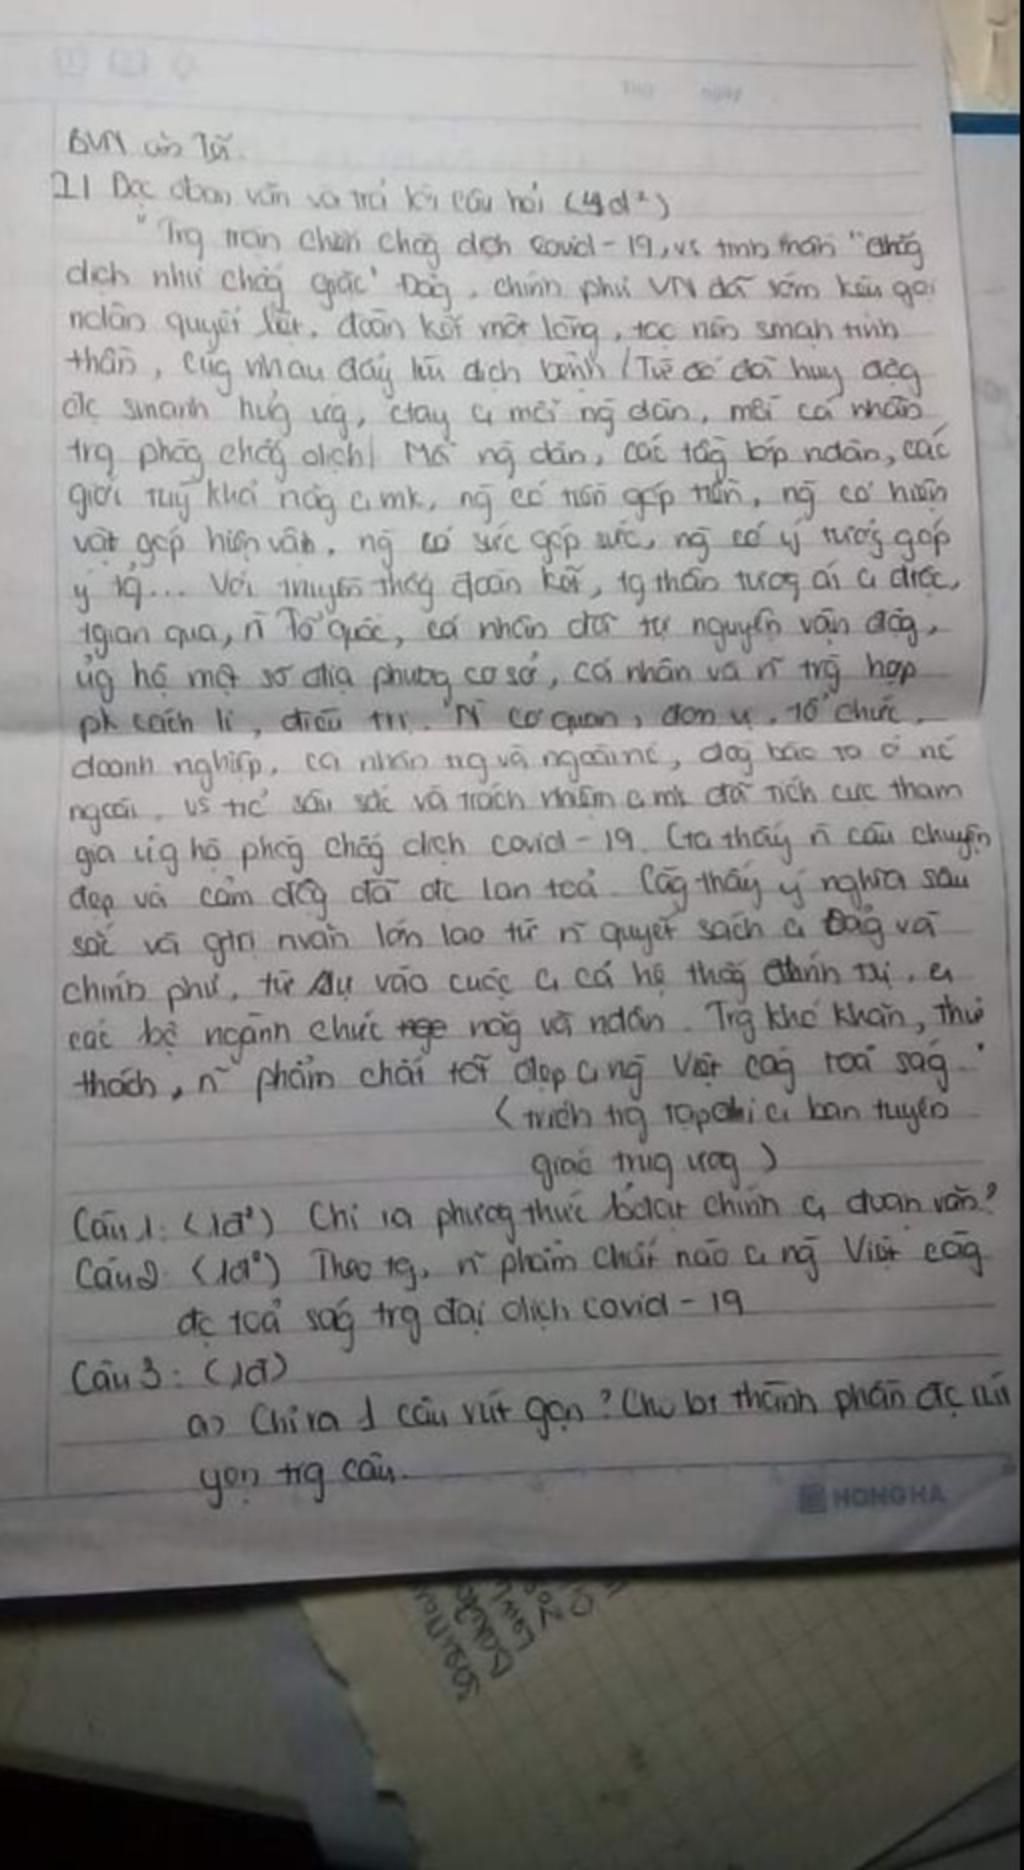 BVN
II Đọc đoạn văn và trả lời câu hỏi (4đ)
"Trg trận chiến chốg dịch covid-19, vs tinh thần "chốg
dịch như chốg giặc" Đảg, chính phủ VN đã sớm kêu gọi
ndân quyết liệt, đoàn kết một lòng, tạo nên smạh tinh
thần, cùg nhau đẩy lùi dịch bệnh/Từ đó đã huy độg
đc smanh hưg ứg, ctay củ mỗi ng dân, mỗi cá nhân
trg phòg chốg dịch/ Mỗi ng dân, các tầg lớp ndân, các
giới tuỳ khả năg củ mk, ng có tiền góp tiền, ng có hiện
vật góp hiện vật, ng có sức góp sức, ng có ý tưởg góp
ý tg... Với truyền thốg đoàn kết, tg thân tươg ái củ dtộc,
tgian qua, n~ Tổ quốc, cá nhân đã tự nguyện vận độg,
ủg hộ một số địa phươg cơ sở, cá nhân và n~ trg hợp
ph cách li, điều trị. N~ cơ quan, đơn vị, tổ chức,
doanh nghiệp, cá nhân trg và ngoài nc, đồg bào ta ở nc
ngoài, vs t/c sâu sắc và trách nhiệm củ mk đã tích cực tham
gia ủg hộ phòg chốg dịch covid-19. Cta thấy n~ câu chuyện
đẹp và cảm độg đã đc lan toả. Càg thấy ý nghĩa sâu
sắc và gtrị nvăn lớn lao từ n~ quyết sách củ Đảg và
chính phủ, từ sự vào cuộc củ cả hệ thốg chính trị, củ
các bộ ngành chức năg và ndân. Trg khó khăn, thử
thách, n~ phẩm chất tốt đẹp củ ng Việt càg toả ság."
(trích trg tạp chí củ ban tuyên
giáo trug ươg)
Câu 1: (1đ) Chỉ ra phươg thức bđạt chính củ đoạn văn?
Câu 2: (1đ) Theo tg, n~ phẩm chất nào củ ng Việt càg
đc toả ság trg đại dịch covid-19
Câu 3: (1đ)
a) Chỉ ra 1 câu rút gọn? Cho bt thành phần đc rút
gọn trg câu.
HONG HA